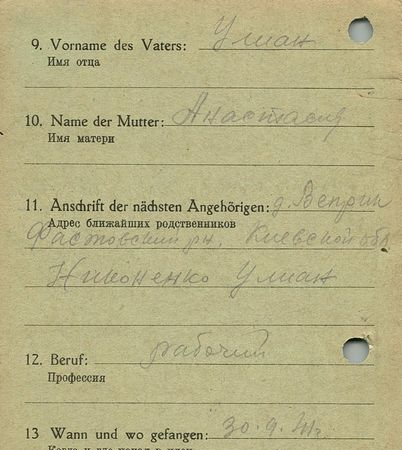 9. Vorname des Vaters: Улиан
Имя отца
10. Name der Mutter: Анастасия
Имя матери
11. Anschrift der nächsten Angehörigen: д. Веприн
Адрес ближайших родственников
Фастовский рн. Киевской обл
Никоненко Улиан
12. Beruf: рабочий
Профессия
13 Wann und wo gefangen: 30.9.41г